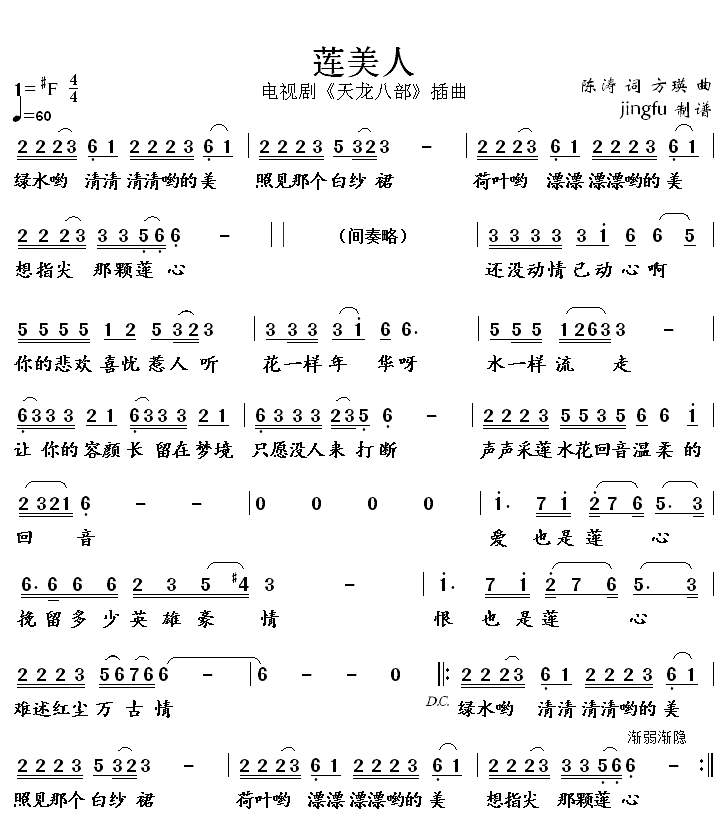 莲美人
1=#F 4/4
电视剧《天龙八部》插曲
陈涛 词 方瑛 曲
♩=60
jingfu 制谱
2 2 2 3 6 1 2 2 2 3 6 1 | 2 2 2 3 5 3 2 3 - | 2 2 2 3 6 1 2 2 2 3 6 1 |
绿水哟 清清 清清哟的美 照见那个白纱 裙 荷叶哟 漂漂 漂漂哟的美
2 2 2 3 3 3 5 6 6 - || (间奏略) | 3 3 3 3 3 1 6 6 5 |
想指尖 那颗莲 心 还没动情己动心啊
5 5 5 5 1 2 5 3 2 3 | 3 3 3 3 1 6 6. | 5 5 5 1 2 6 3 3 - |
你的悲欢 喜忧 惹人 听 花一样年 华呀 水一样 流 走
6 3 3 3 2 1 6 3 3 3 2 1 | 6 3 3 3 2 3 5 6 - | 2 2 2 3 5 5 3 5 6 6 1 |
让 你的 容颜 长 留在 梦境 只愿没人来 打断 声声采莲 水花回音温柔的
2 3 2 1 6 - - | 0 0 0 0 | 1. 7 1 2 7 6 5. 3 |
回 音 爱 也是 莲 心
6. 6 6 6 2 3 5 #4 3 - | 1. 7 1 2 7 6 5. 3 |
挽留多少英雄豪 情 恨 也是莲 心
2 2 2 3 5 6 7 6 6 - | 6 - - 0 ‖: 2 2 2 3 6 1 2 2 2 3 6 1 |
难述红尘 万 古 情 D.C. 绿水哟 清清 清清哟的美
渐弱渐隐
2 2 2 3 5 3 2 3 - | 2 2 2 3 6 1 2 2 2 3 6 1 | 2 2 2 3 3 3 5 6 6 - :‖
照见那个白纱 裙 荷叶哟 漂漂 漂漂哟的 美 想指尖 那颗莲 心